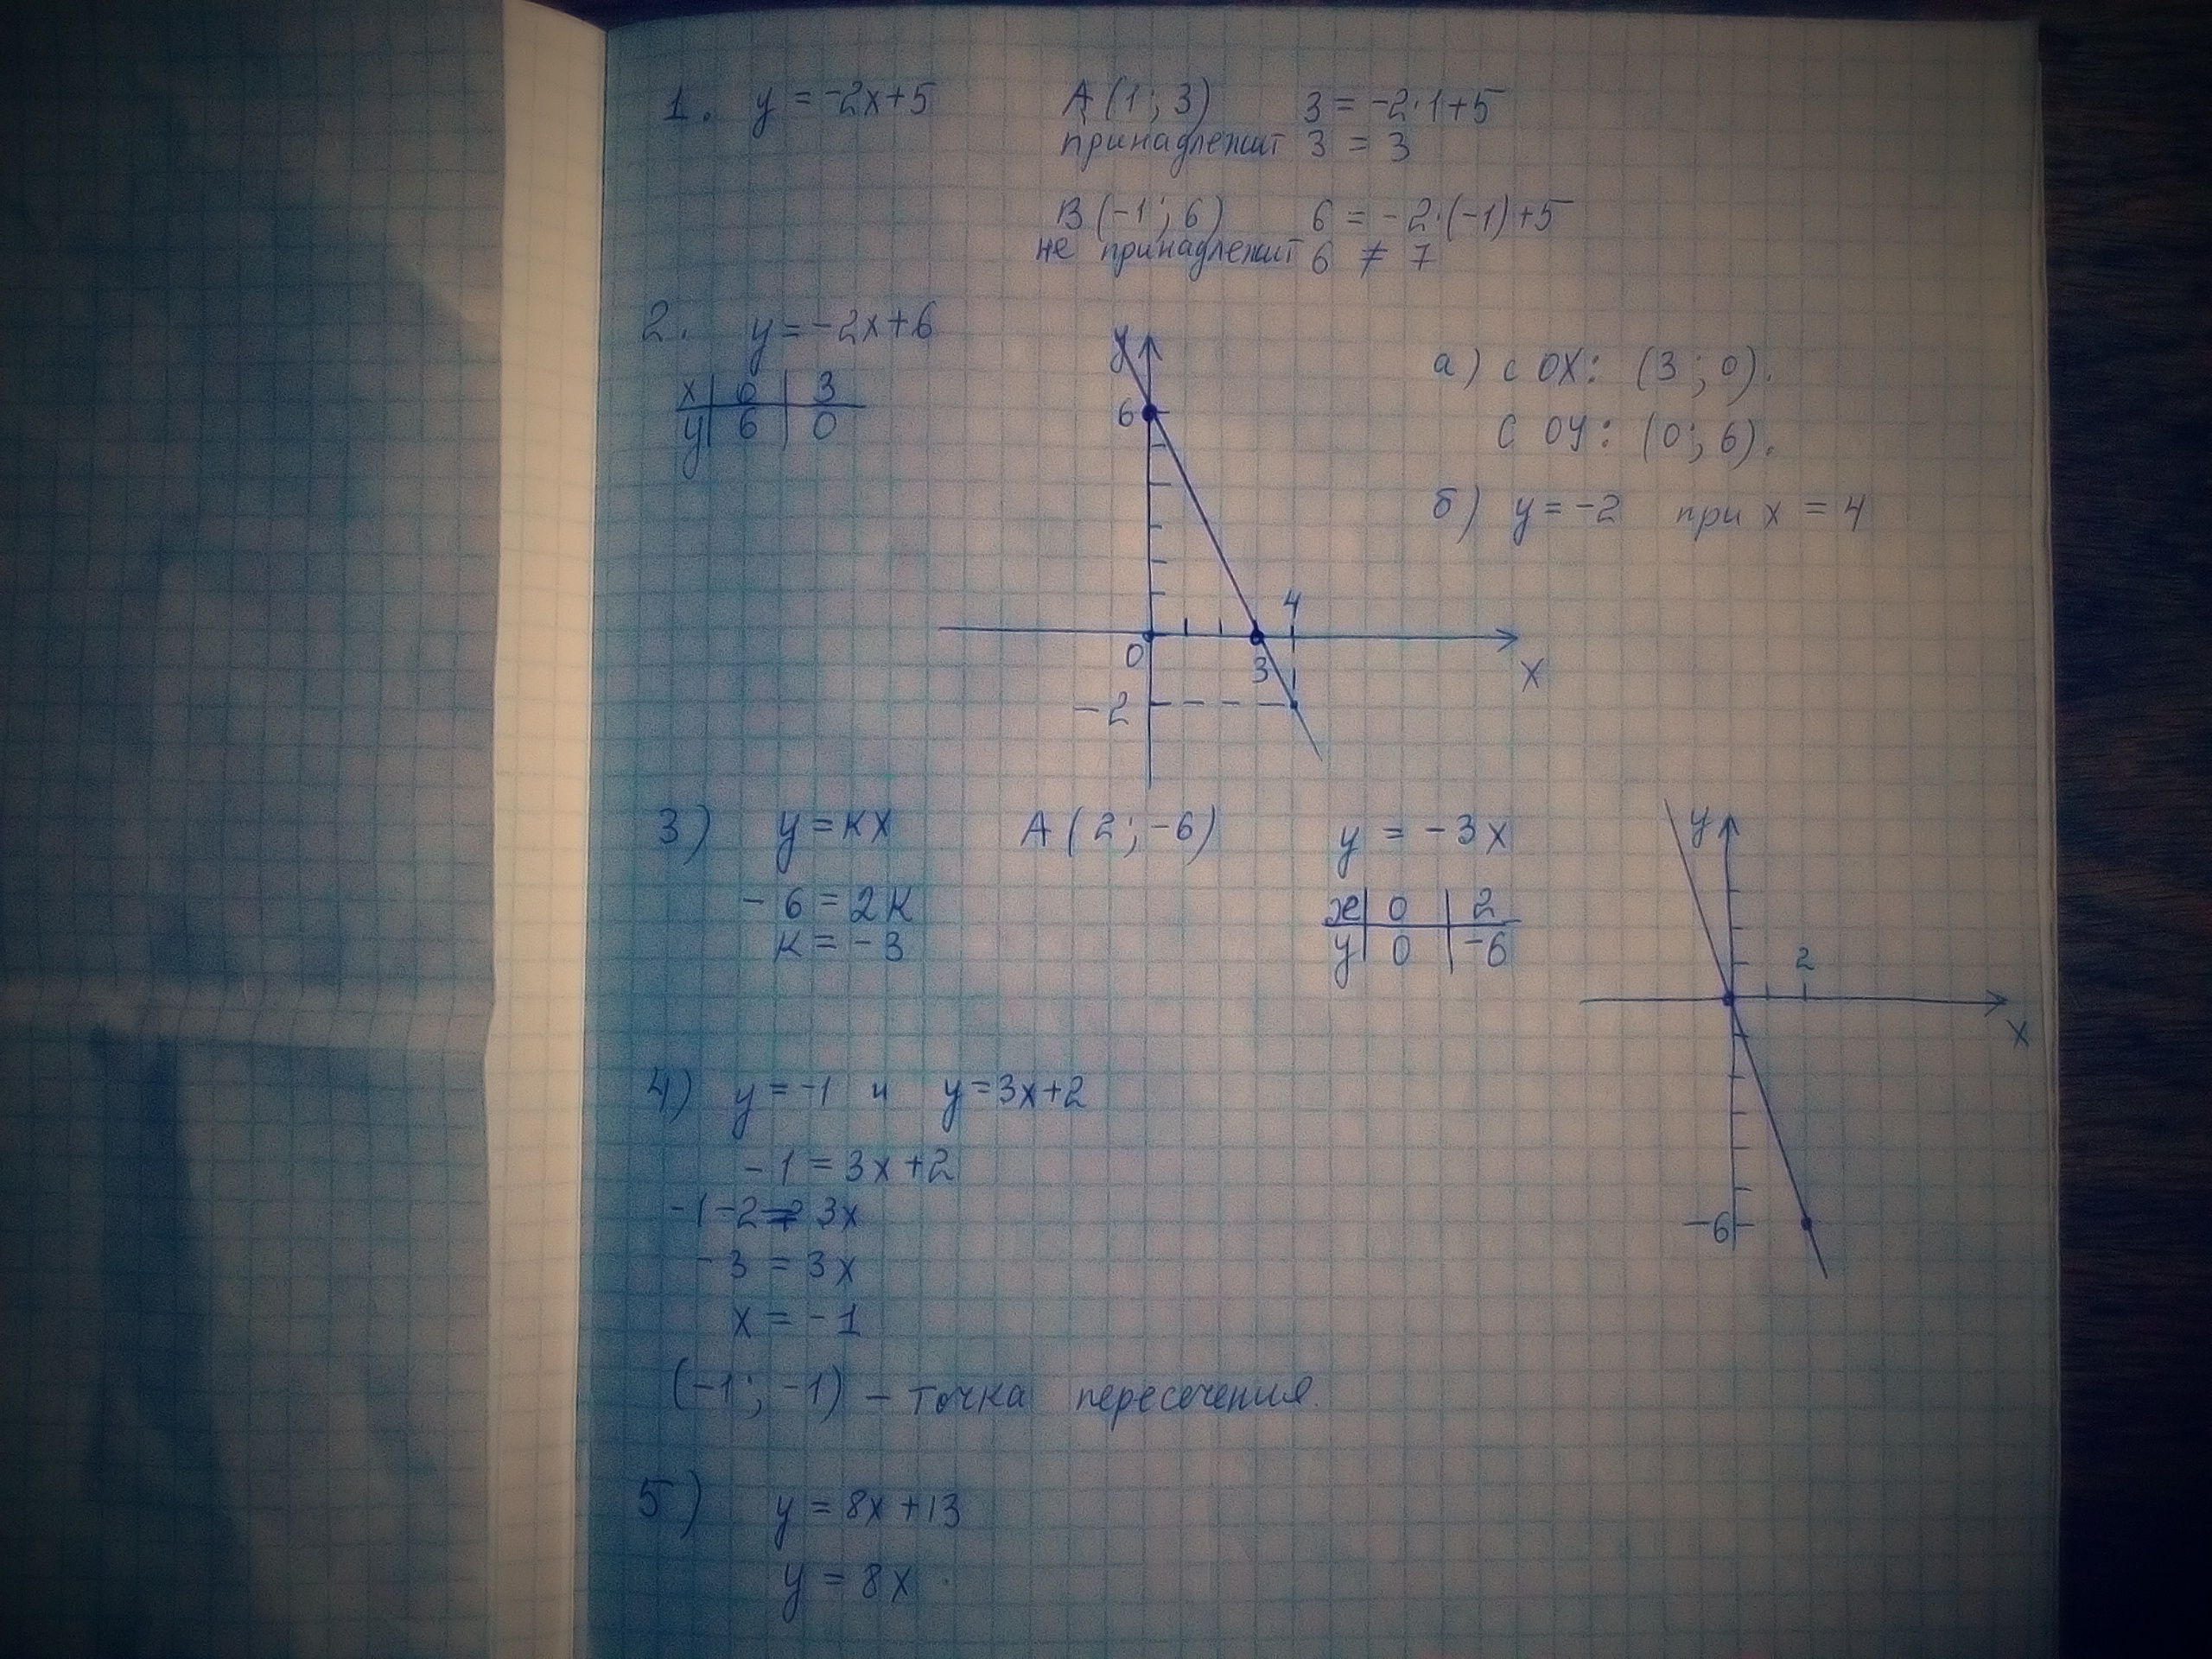 1. y = -2x+5 A(1; 3) 3 = -2·1+5
принадлежит 3 = 3
B(-1; 6) 6 = -2·(-1)+5
не принадлежит 6 ≠ 7
2. y = -2x+6
x 0 3
y 6 0
y
6
0
3
4
-2
x
а) с OX: (3; 0).
с OY: (0; 6).
б) y = -2 при x = 4
3) y = kx A(2; -6) y = -3x
-6 = 2k
k = -3
x 0 2
y 0 -6
y
2
x
-6
4) y = -1 и y = 3x+2
-1 = 3x+2
-1-2 = 3x
-3 = 3x
x = -1
(-1; -1) - точка пересечения.
5) y = 8x+13
y = 8x